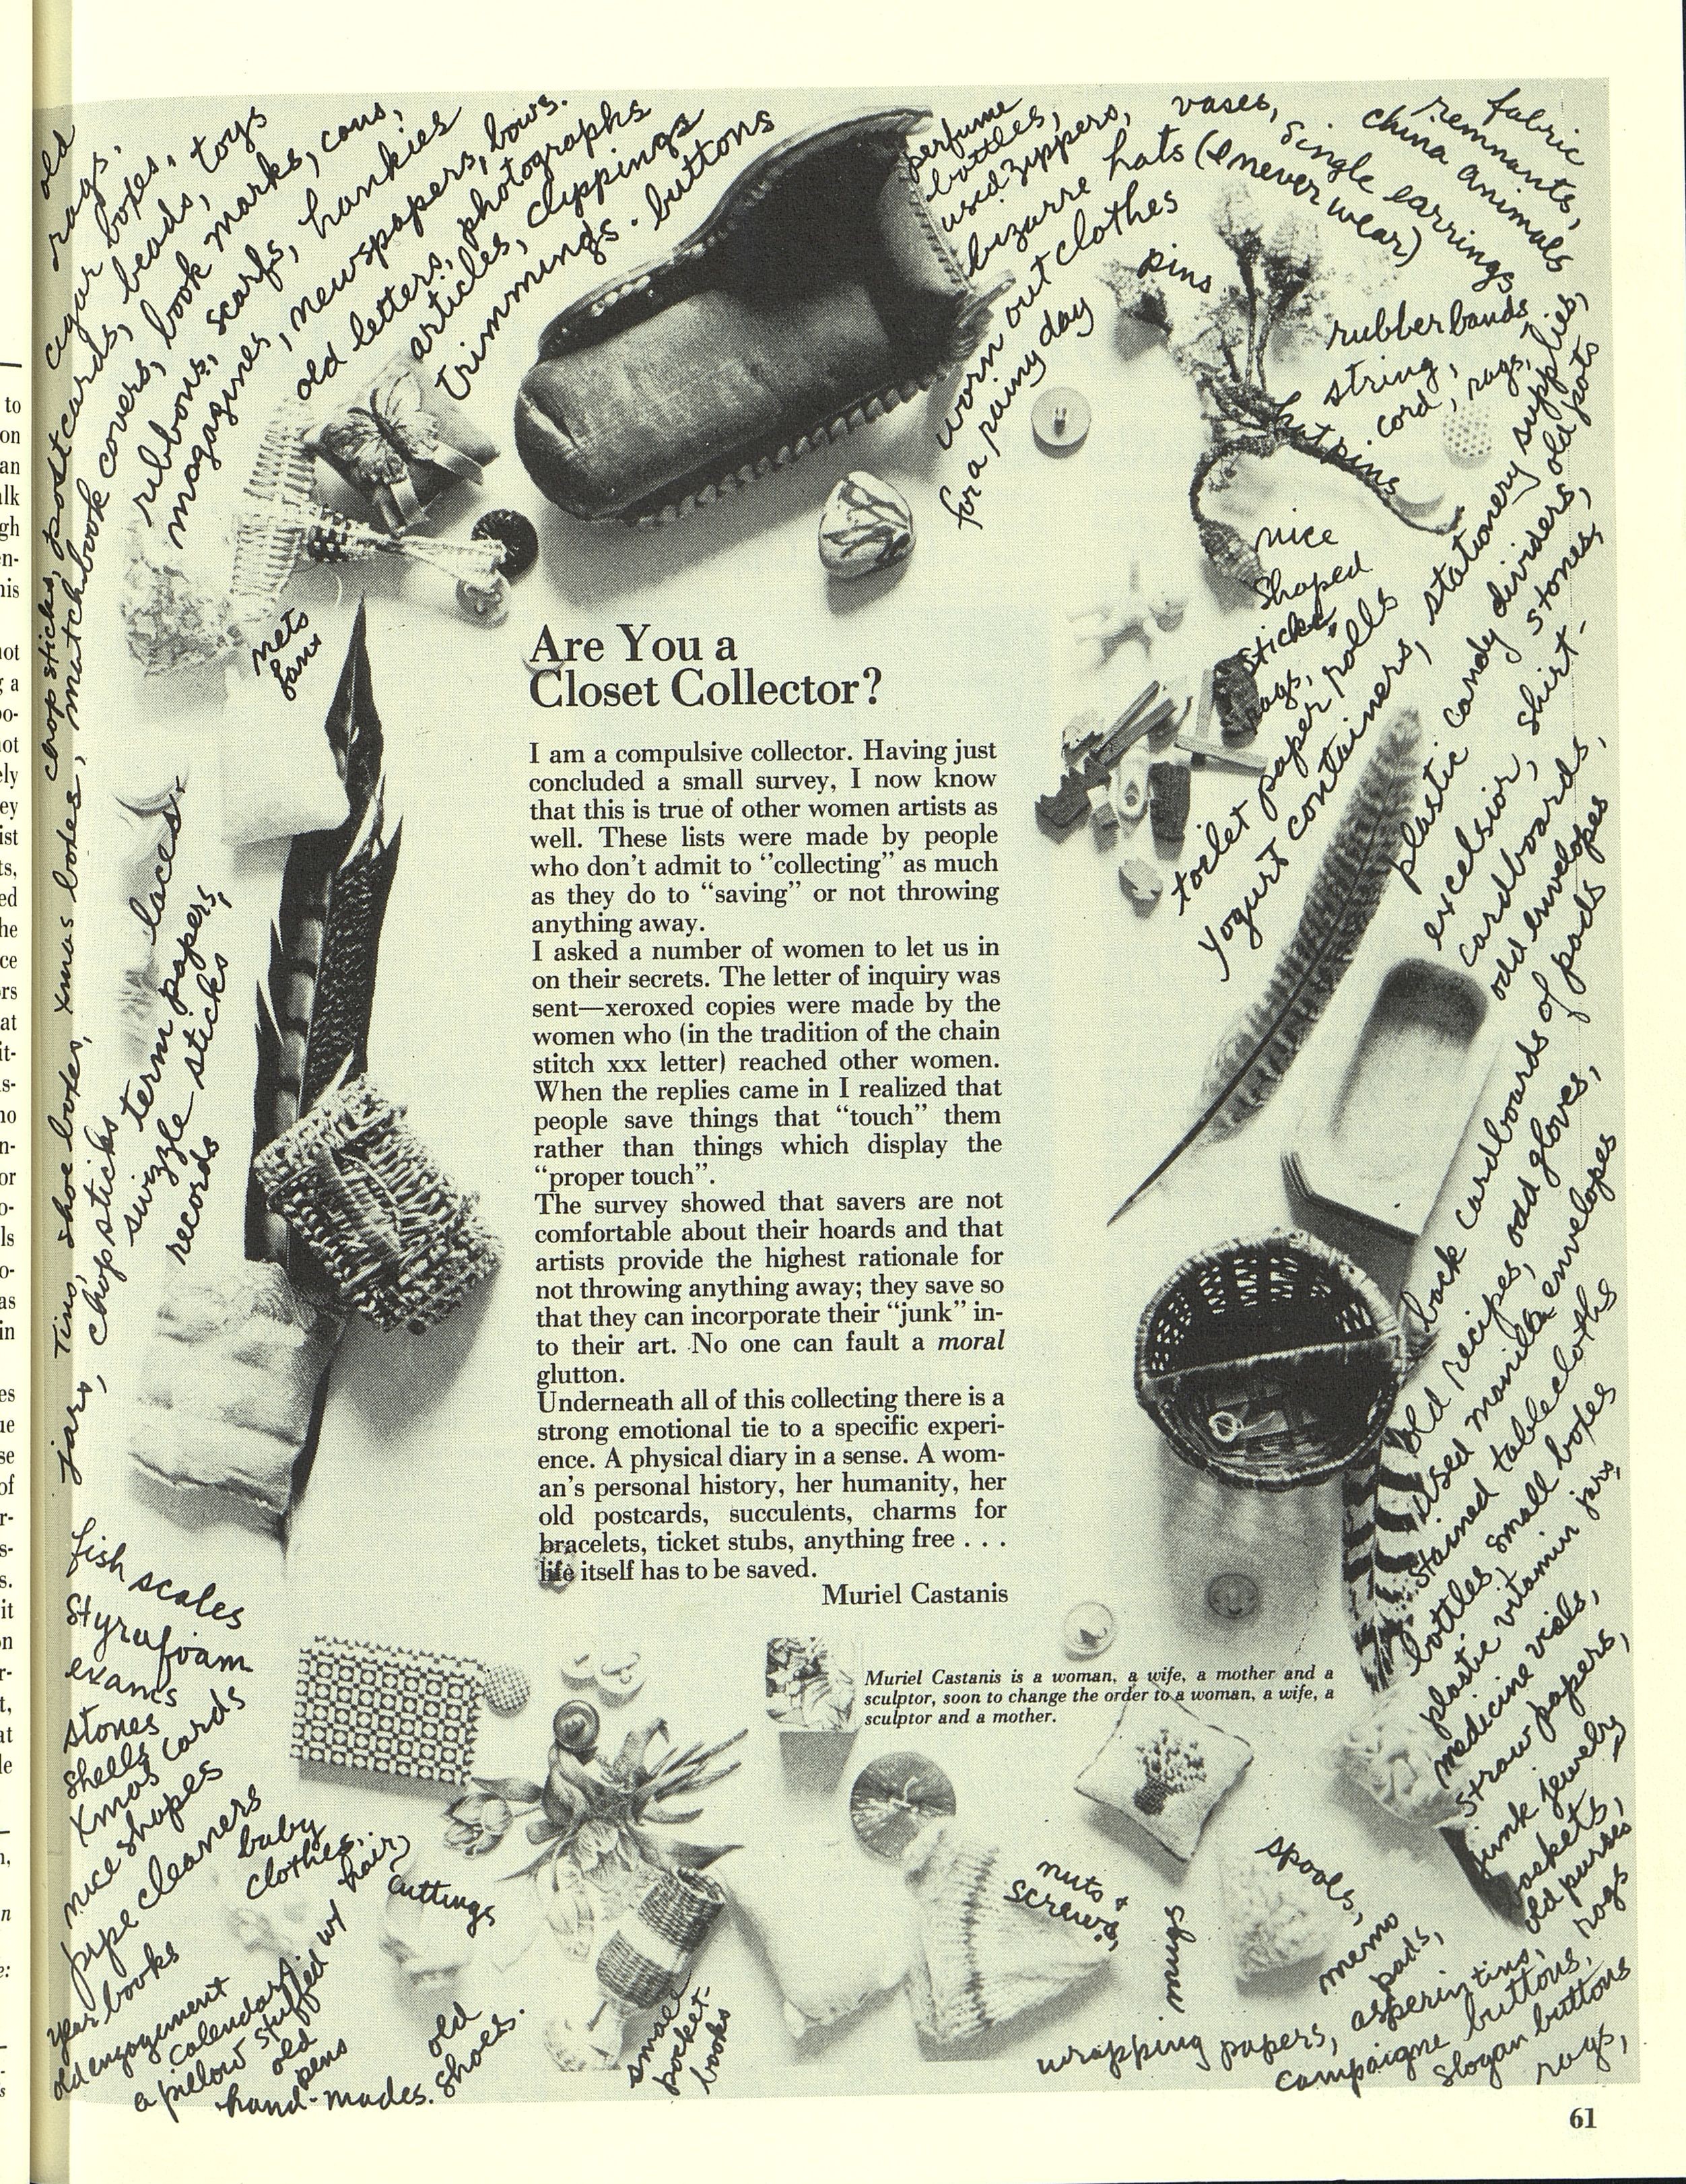 old
rags.
cigar boxes, toys
chopsticks, postcards, beads,
matchbook covers, book marks, cans,
ribbons, scarfs, hankies
magazines, newspapers, bows.
old letters, photographs
articles, clippings
trimmings. buttons
perfume
bottles,
used zippers,
vases,
bizarre hats (I never wear)
single earrings
china animals
remnants,
fabric
worn out clothes
for a rainy day
pins
rubberbands
string,
cord, rags,
hatpins
nice
shaped
sticks
rags,
toilet paper rolls
yogurt containers, stationery supplies,
plastic candy dividers, old pots
excelsior, shirt-
stones,
cardboards,
odd envelopes
back cardboards of pads
old recipes, odd gloves,
used manilla envelopes
stained tablecloths
bottles, small boxes
plastic vitamin jars,
medicine vials,
straw papers,
junk jewelry
baskets,
old purses
rags
nets
laces.
term papers,
swizzle sticks
records
Tins, shoe boxes, xmas boxes,
jars, chopsticks
Are You a
Closet Collector?
I am a compulsive collector. Having just
concluded a small survey, I now know
that this is true of other women artists as
well. These lists were made by people
who don't admit to "collecting" as much
as they do to "saving" or not throwing
anything away.
I asked a number of women to let us in
on their secrets. The letter of inquiry was
sent—xeroxed copies were made by the
women who (in the tradition of the chain
stitch xxx letter) reached other women.
When the replies came in I realized that
people save things that "touch" them
rather than things which display the
"proper touch".
The survey showed that savers are not
comfortable about their hoards and that
artists provide the highest rationale for
not throwing anything away; they save so
that they can incorporate their "junk" in-
to their art. No one can fault a moral
glutton.
Underneath all of this collecting there is a
strong emotional tie to a specific experi-
ence. A physical diary in a sense. A wom-
an's personal history, her humanity, her
old postcards, succulents, charms for
bracelets, ticket stubs, anything free . . .
life itself has to be saved.
Muriel Castanis
Muriel Castanis is a woman, a wife, a mother and a
sculptor, soon to change the order to a woman, a wife, a
sculptor and a mother.
fish scales
Styrafoam
exams
stones
shells
Xmas cards
nice shapes
pipe cleaners
year books
baby
clothes,
cuttings
old engagement
calendars
a pillow stuffed w/ hair)
old
pens
hand-mades.
old
shoes.
small
pocket-
books
nuts +
screws,
mugs
spools,
memo
pads,
wrapping papers, asperin tins,
campaigne buttons,
slogan buttons
rags,
61